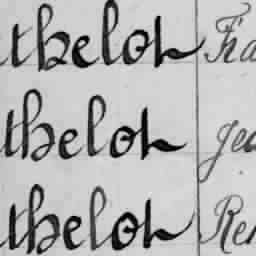 thelot Fra
thelot Jea
thelot Ren